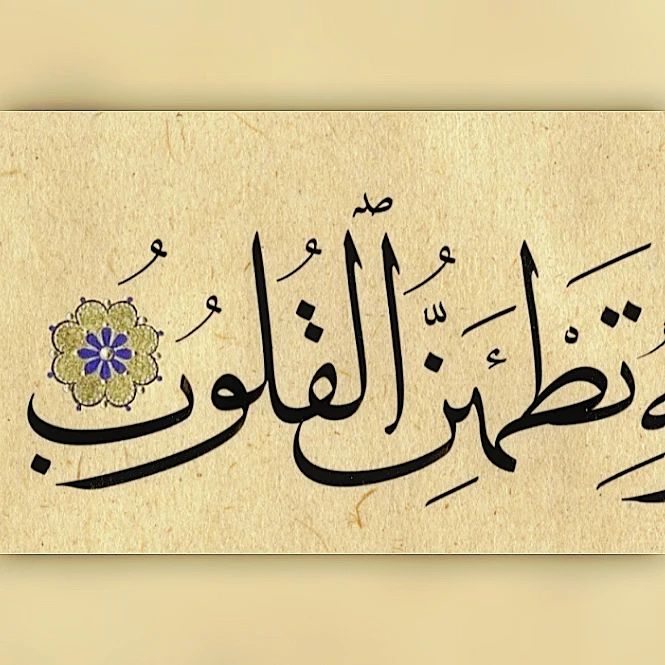 تَطْمَئِنُّ الْقُلُوبُ